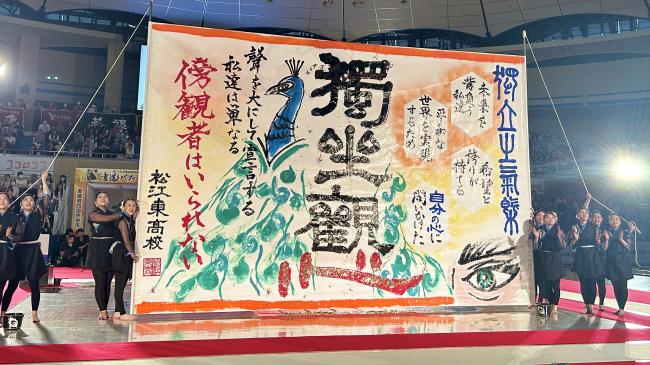 未来を
背負う私達
希望と
誇りが
持てる
平和な
世界を実現
するため
自分の心に
問いかけた
獨坐觀
聲を大にして宣言する
私達は単なる
傍観者はいられない
松江東高校